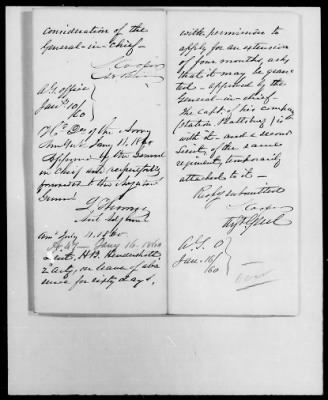 consideration of the
General-in-Chief—
S. Cooper
A. G. Office
Jany 10/
60
Hd. Qrs of the Army
Jany 11. 1860
Approved by the General
in Chief and respectfully
forwarded to the Adjutant
General
L Thomas
Asst Adj Genl
11. 1860
A.G.O. Jany 16. 1860
Lieut. H.B.
2' Arty, on leave of ab-
sence for sixty days,
with permission to
apply for an extension
of four months, asks
that it may be gran-
ted - approved by the
General-in-Chief—
The Capt. of his company
(station, Plattsbg) is
with it - and a second
Lieut. of the same
regiment, temporarily
attached to it—
Respy submitted
S. Cooper
Adjt Genl
A. G. O
Jan. 16/
60